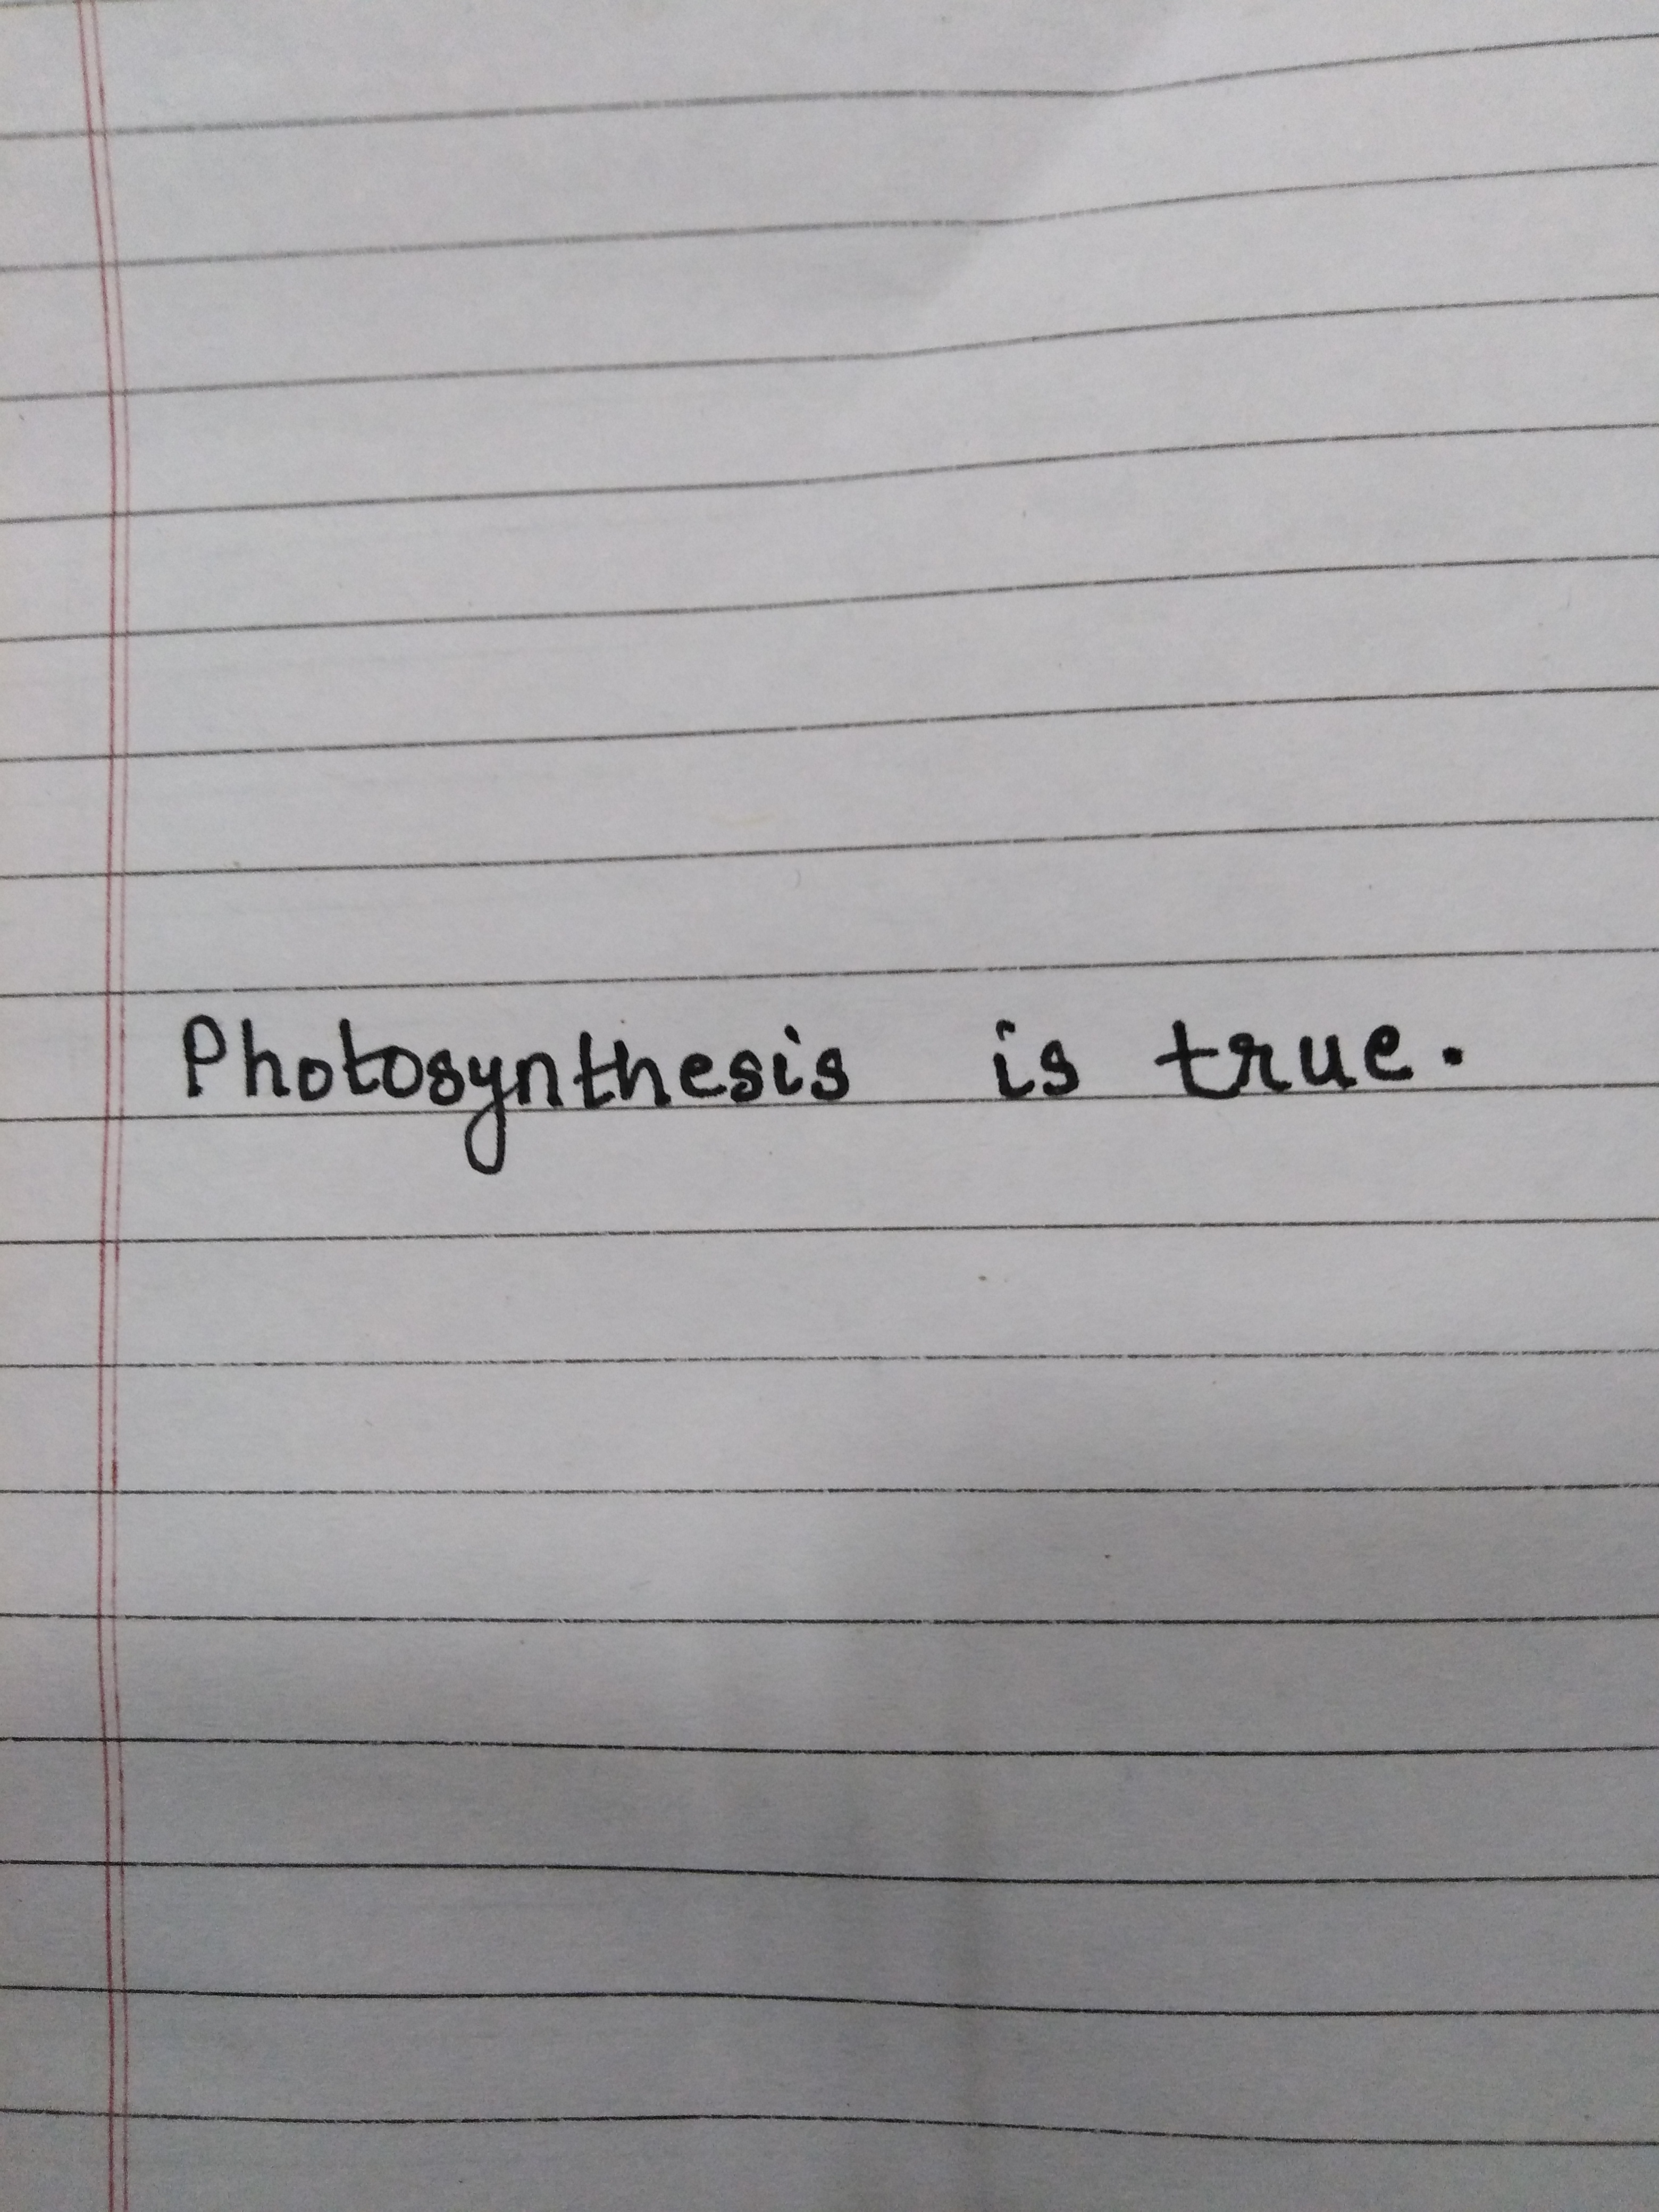 Photosynthesis is true.